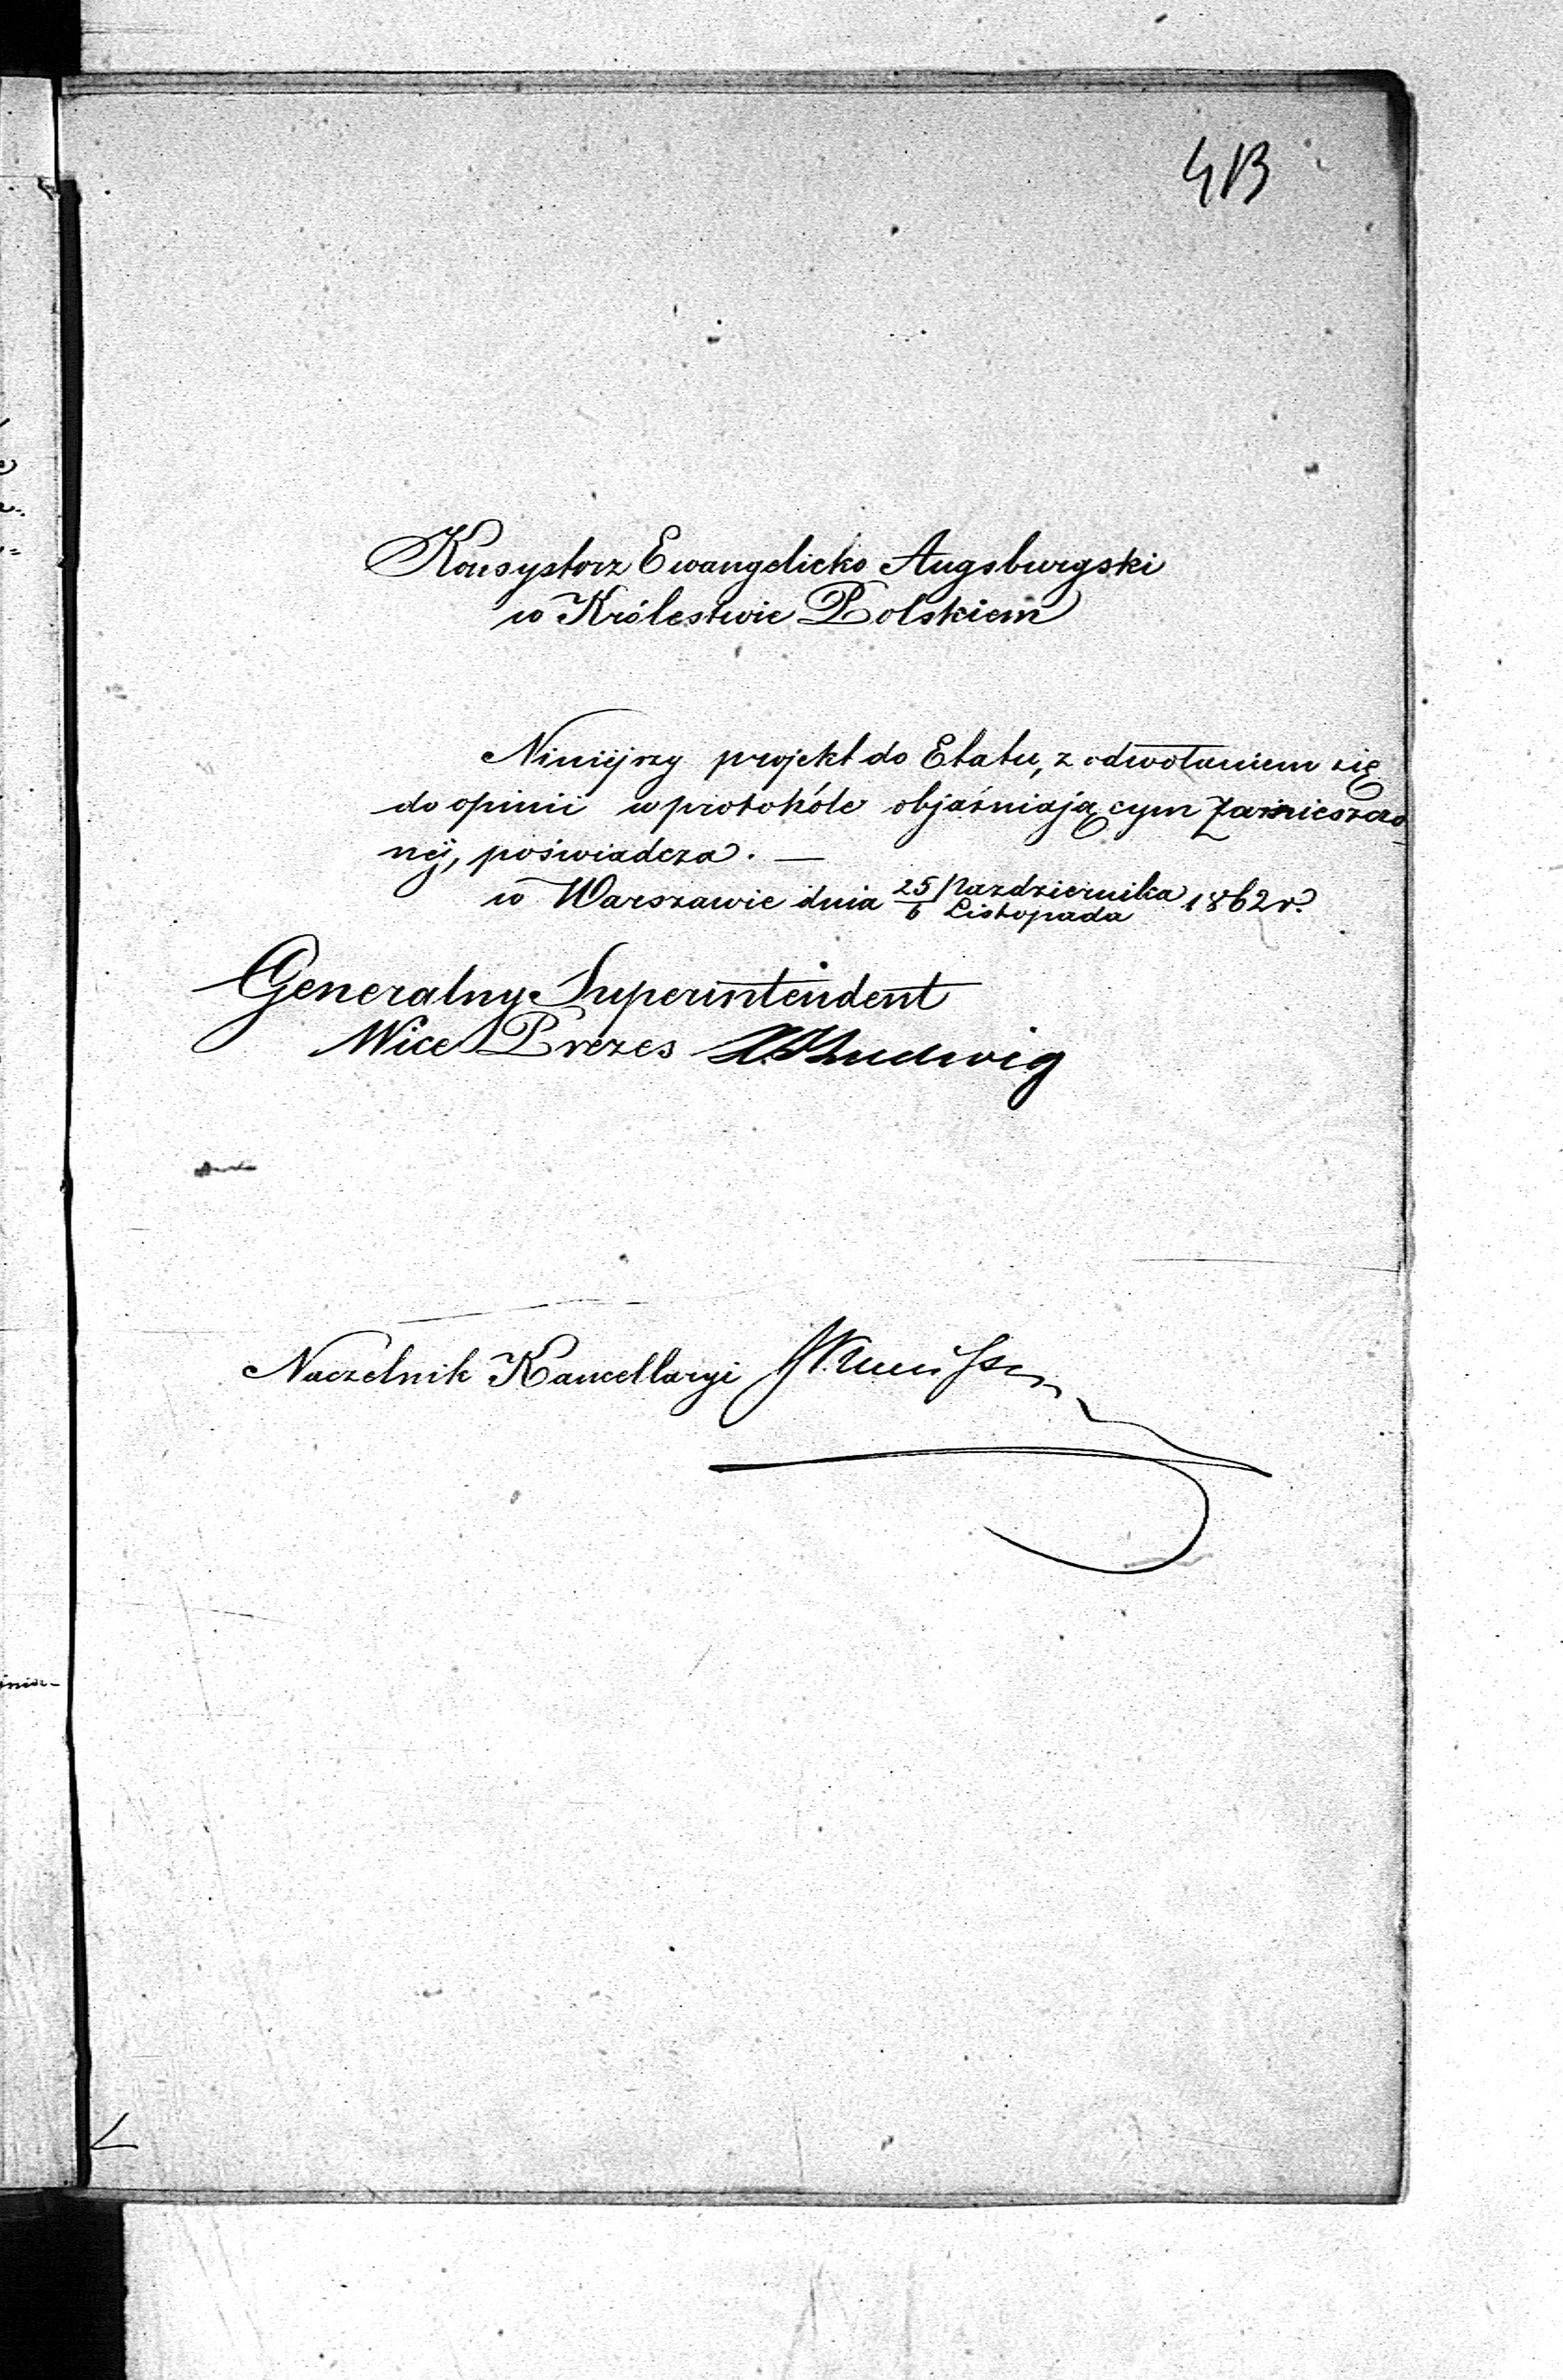 413
Konsystorz Ewangelicko Augsburgski
w Królestwie Polskiem
Niniéjszy projekt do Etatu, z odwołaniem się
do opinii w protokóle objaśniającym zamieszczo
néj, poświadcza. —
w Warszawie dnia 25/6 Października/Listopada 1862 r.
Generalny Superintendent
Wice Prezes Ludwig
Naczelnik Kancellaryi